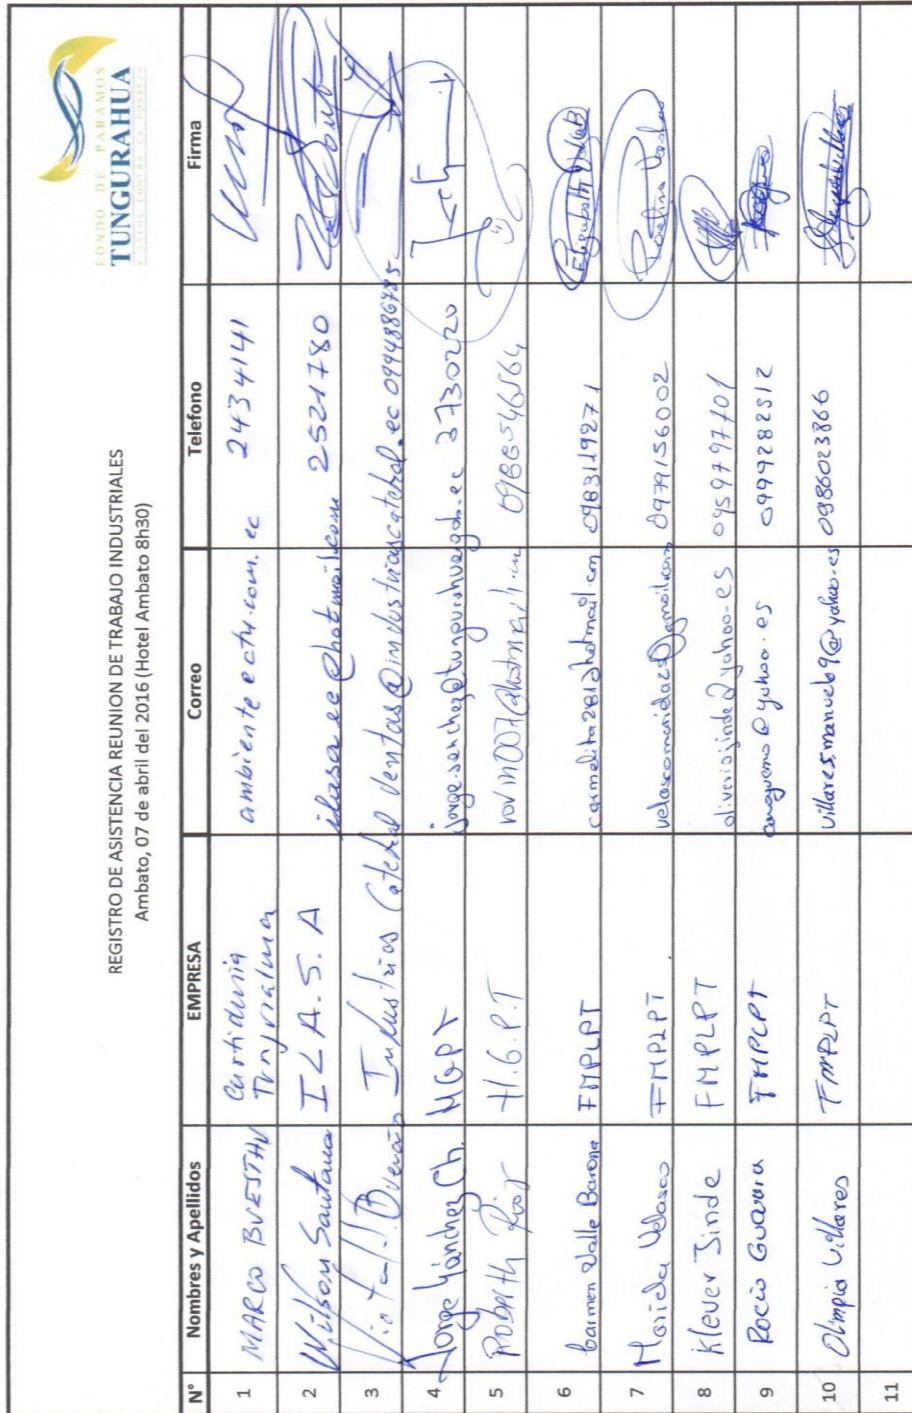 FONDO DE PARAMOS
TUNGURAHUA
REGISTRO DE ASISTENCIA REUNION DE TRABAJO INDUSTRIALES
Ambato, 07 de abril del 2016 (Hotel Ambato 8h30)
N° Nombres y Apellidos EMPRESA Correo Telefono Firma
1 MARCO BUESTAN Curtiduria Tungurahua ambiente ectu.com.ec 2434141
2 Wilson Santana I L A. S. A ilasa ec@hotmail.com 2521780
3 Industrias Catedral ventas@industriascatedral.ec 0994886785
4 Jorge Sánchez Ch. HGPT jorge.sanchez@tungurahua.gob.ec 2730220
5 H.G.P.T
6 Carmen Valle Barona FMPLPT carmelita2812hotmail.com 0983119271
7 Maricla Velasco FMPLPT 0979156002
8 Klever Jinde FMPLPT oliveriojinde@yahoo.es 0959797701
9 Rocio Guarria FMPLPT @yahoo.es 0999282512
10 Olimpia Villares FMPLPT villares,manueb9@yahoo.es 0986023866
11